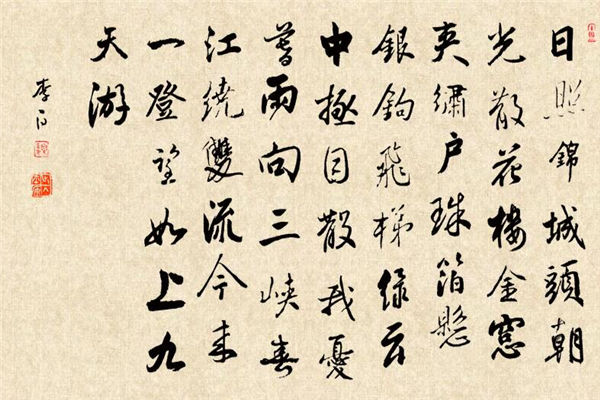 日照錦城頭朝
光散花樓金窓
夾繡戶珠箔懸
銀鉤飛梯綠云
中極目散我憂
暮雨向三峽春
江繞雙流今来
一登望如上九
天游
李白